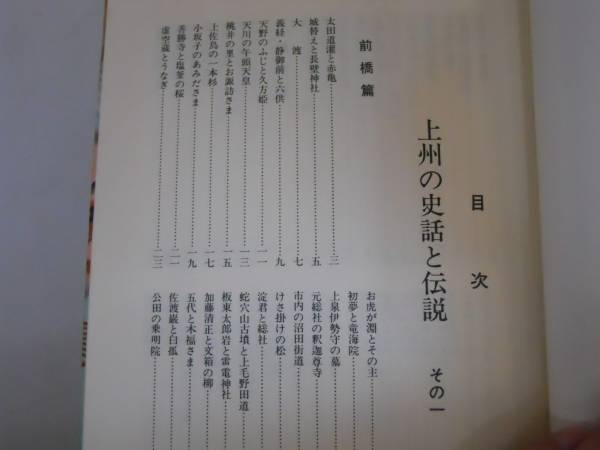 目次
上州の史話と伝説 その一
前橋篇
太田道灌と赤亀……三
城替えと長壁神社……五
大渡……七
義経・静御前と六供……九
天野のふじと久方姫……一一
天川の午頭天皇……一三
桃井の里とお諏訪さま……一五
上佐鳥の一本杉……一七
小坂子のあみださま……一九
善勝寺と塩釜の桜……二一
虚空蔵とうなぎ……二三
お虎が淵とその主
初夢と竜海院……
上泉伊勢守の墓……
元総社の釈迦尊寺
市内の沼田街道……
けさ掛けの松……
淀君と総社……
蛇穴山古墳と上毛野田道
板東太郎岩と雷電神社……
加藤清正と文箱の柳……
五代と木福さま……
佐渡巌と白狐……
公田の乗明院……